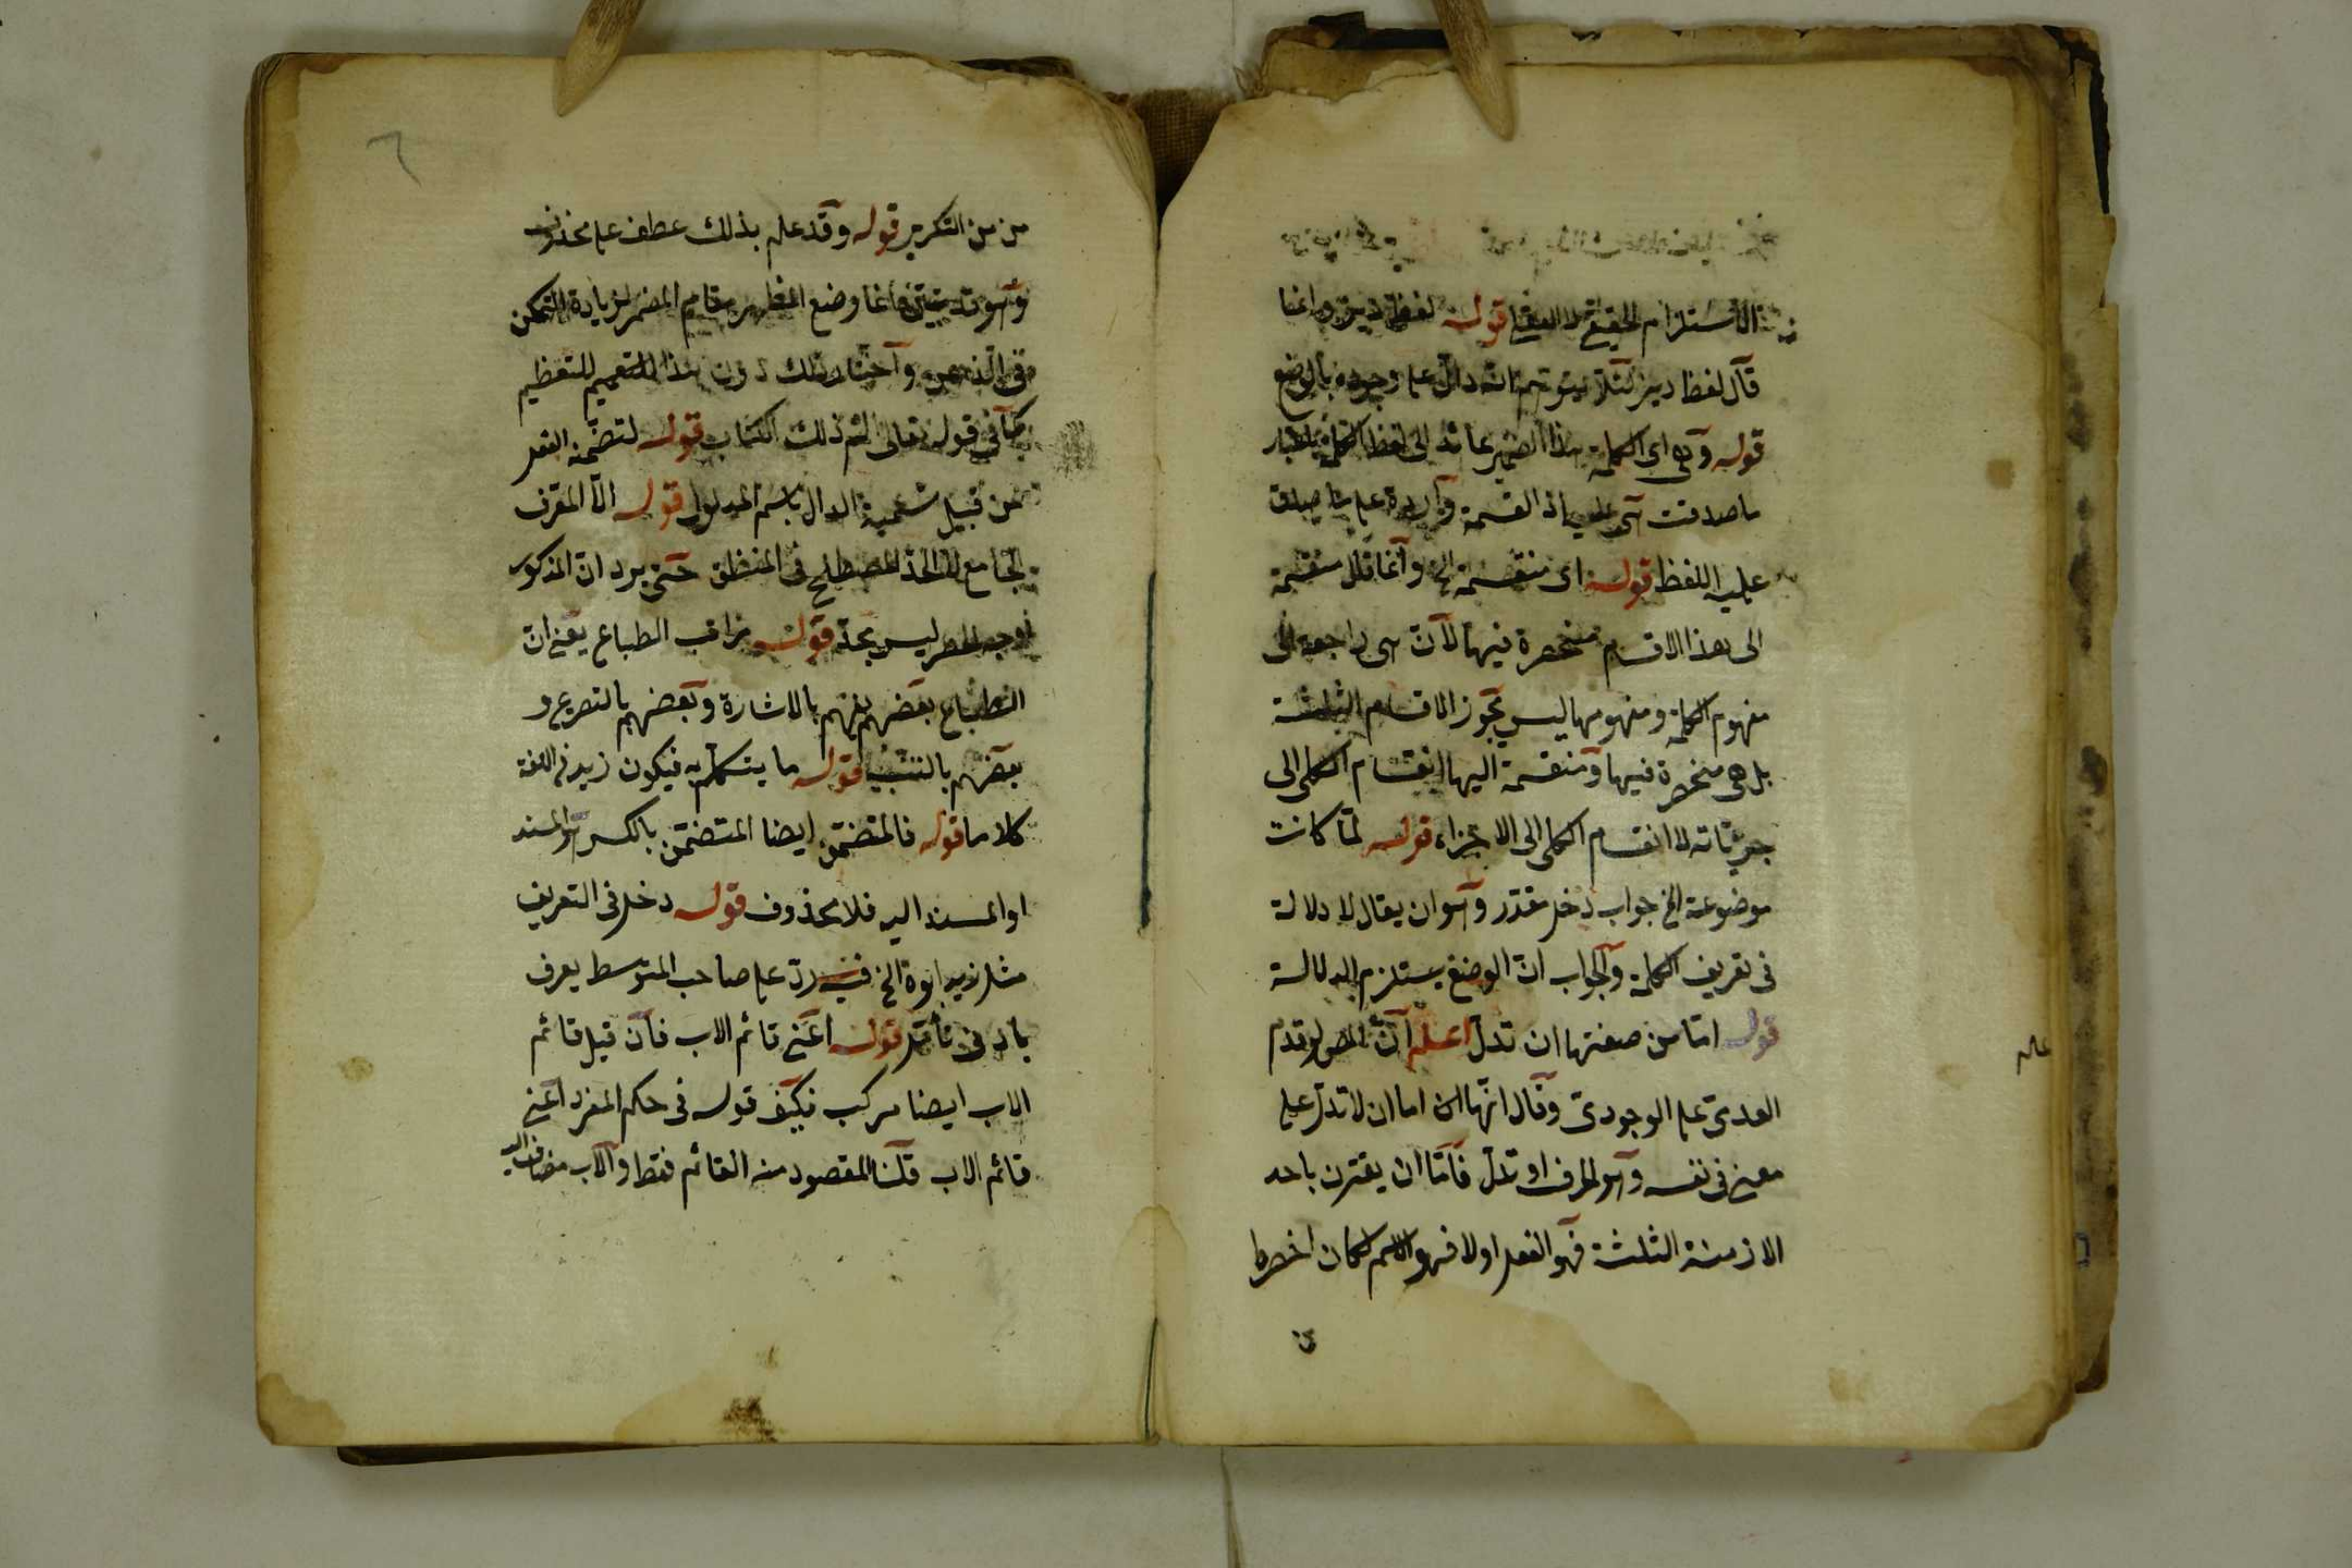 الاستلزام الحقيقى لا العقلى قوله لفظ ديز وانما
قال لفظ ديز لئلا يتوهم انه دال على وجوده بالوضع
قوله وهى اى الكلمة هذا الضمير عائد الى لفظ الكلمة باعتبار
ما صدقت هى عليه اذ القسمة واردة على ما صدق
عليه اللفظ قوله اى منقسمة الخ وانما قال منقسمة
الى هذا الاقسام منحصرة فيها لان هى راجعة الى
مفهوم الكلمة ومفهومها ليس الاقسام الثلثة
بل هى منحصرة فيها ومنقسمة اليها انقسام الكلى الى
جزئياته لا انقسام الكلى الى الاجزاء قوله لما كانت
موضوعة الخ جواب دخل مقدر وهو ان يقال لا دلالة
فى تعريف الكلمة والجواب ان الوضع يستلزم الدلالة
قوله اما من صفتها ان تدل اعلم ان المص لو قدم
العدمى على الوجودى وقال انها اما ان لا تدل على
معنى فى نفسه وهو الحرف او تدل فاما ان يقترن باحد
الازمنة الثلثة فهو الفعل اولا فهو الاسم لكان اخصر
من من التكرير قوله وقد علم بذلك عطف على محذوف
وهو قد وانما وضع المظهر مقام المضمر لزيادة التمكن
فى الذهن واختار ذلك دون هذا للتعظيم
كما فى قوله تعالى الم ذلك الكتاب قوله لتضمنه الفعل
من قبيل تسمية الدال باسم المدلول قوله الا المعرف
الجامع لا الحد المصطلح فى المنطق حتى يرد ان المذكور
وجه الحصر ليس بحد قوله مراتب الطباع يعنى ان
الطباع بعضهم يفهم بالاشارة وبعضهم بالتصريح و
بعضهم بالتنبيه قوله ما يتكلم به فيكون زيد فى اللغة
كلاما قوله فالمتضمن ايضا المتضمن بالكسر والمسند
او المسند اليه فلا محذوف قوله دخل فى التعريف
مثل زيد ابوه الخ فيه رد على صاحب المتوسط يعرف
بادنى تأمل قوله اعنى قائم الاب فان قيل قائم
الاب ايضا مركب فكيف قوله فى حكم المفرد اعنى
قائم الاب قلنا المقصود منه القائم فقط والاب مضاف اليه